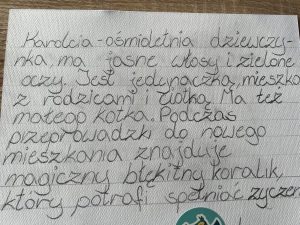 Karolcia - ośmioletnia dziewczy-
nka, ma jasne włosy i zielone
oczy. Jest jedynaczką, mieszka
z rodzicami i ciotką. Ma też
małeop kotka. Podczas
przeprowadzki do nowego
mieszkania znajduje
magiczny błękitny koralik,
który potrafi spełniać życzen